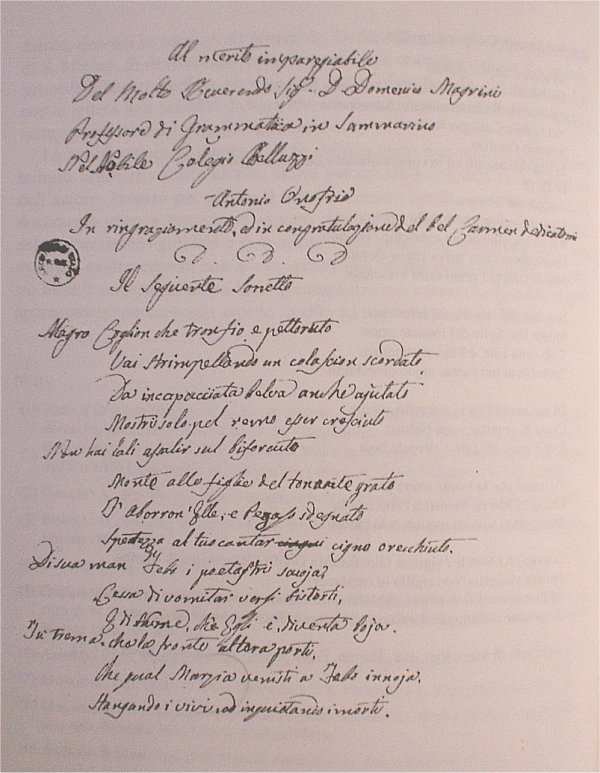 Al merito impareggiabile
Del Molto Reverendo Sig.r D Domenico Magrini
Professore di Grammatica in Sammarino
Nel Nobile Colegio Belluzzi
Antonio Onofrio
In ringraziamento, ed in congratulazione del bel Carmen dedicatomi
D. D. D
Il seguente Sonetto
Magro Coglion che tronfio e pettoruto
Vai strimpellando un colascion scordato,
Da incapacciata belva anche ajutato
Mostri solo nel remo esser cresciuto
Non hai l'ali a salir sul biforcuto
Monte alle figlie del tonante grato
T'aborron' Elle, e Pegaso sdegnato
Spetezza al tuo cantar cigno orecchiuto.
Di sua man Febo i poetastri scuoja,
Cessa di vomitar versi bistorti,
E di Nume, ch'Egli è, diventa boja.
Tu trema, che la fronte altera porti,
Che qual Marzia venisti a Febo in noja,
Stangando i vivi, ed inquietando i morti.